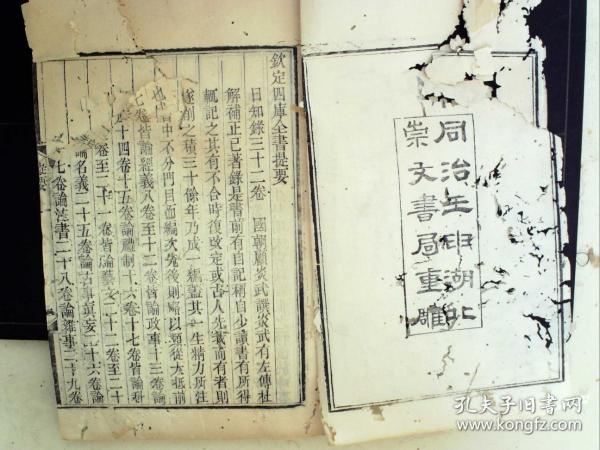 同治壬申湖北
崇文書局重雕
欽定四庫全書提要
日知錄三十二卷 國朝顧炎武撰炎武有左傳杜
解補正已著錄是書前有自記稱自少讀書有所得
輒記之其有不合時復改定或古人先我而有者則
遂削之積三十餘年乃成一編蓋其一生精力所注
書中不分門目而編次先後則略以類從大抵前
七卷皆論經義八卷至十二卷皆論政事十三卷論
十四卷十五卷論禮制十六卷十七卷皆論科
卷至二十一卷皆論藝文二十二卷至二十
論名義二十五卷論古事真妄二十六卷論
七卷論注書二十八卷論雜事二十九卷
提要
孔夫子旧书网
www.kongfz.com